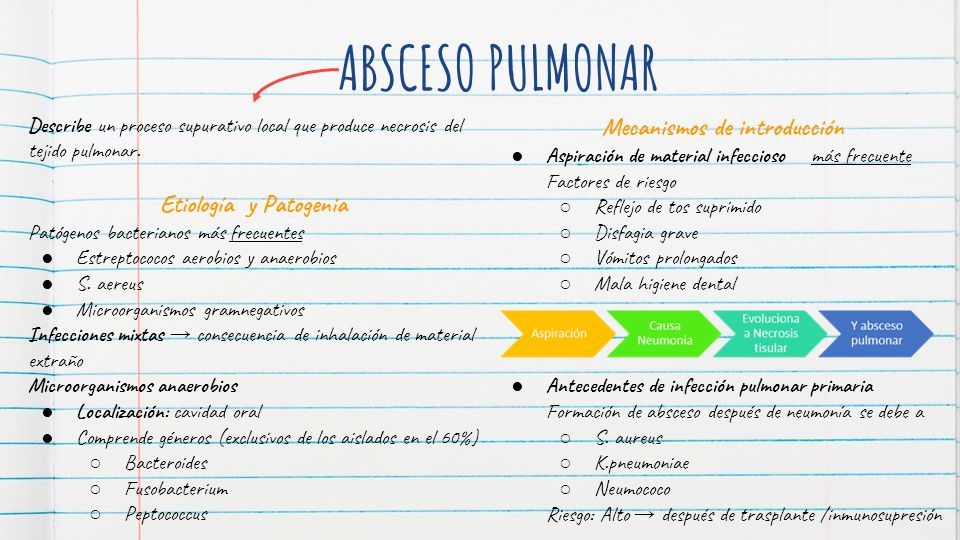 ABSCESO PULMONAR
Describe un proceso supurativo local que produce necrosis del
tejido pulmonar.
Etiología y Patogenia
Patógenos bacterianos más frecuentes
● Estreptococos aerobios y anaerobios
● S. aereus
● Microorganismos gramnegativos
Infecciones mixtas → consecuencia de inhalación de material
extraño
Microorganismos anaerobios
● Localización: cavidad oral
● Comprende géneros (exclusivos de los aislados en el 60%)
○ Bacteroides
○ Fusobacterium
○ Peptococcus
Mecanismos de introducción
● Aspiración de material infeccioso más frecuente
Factores de riesgo
○ Reflejo de tos suprimido
○ Disfagia grave
○ Vómitos prolongados
○ Mala higiene dental
Aspiración
Causa
Neumonia
Evoluciona
a Necrosis
tisular
Y absceso
pulmonar
● Antecedentes de infección pulmonar primaria
Formación de absceso después de neumonía se debe a
○ S. aureus
○ K.pneumoniae
○ Neumococo
Riesgo: Alto → después de trasplante /inmunosupresión